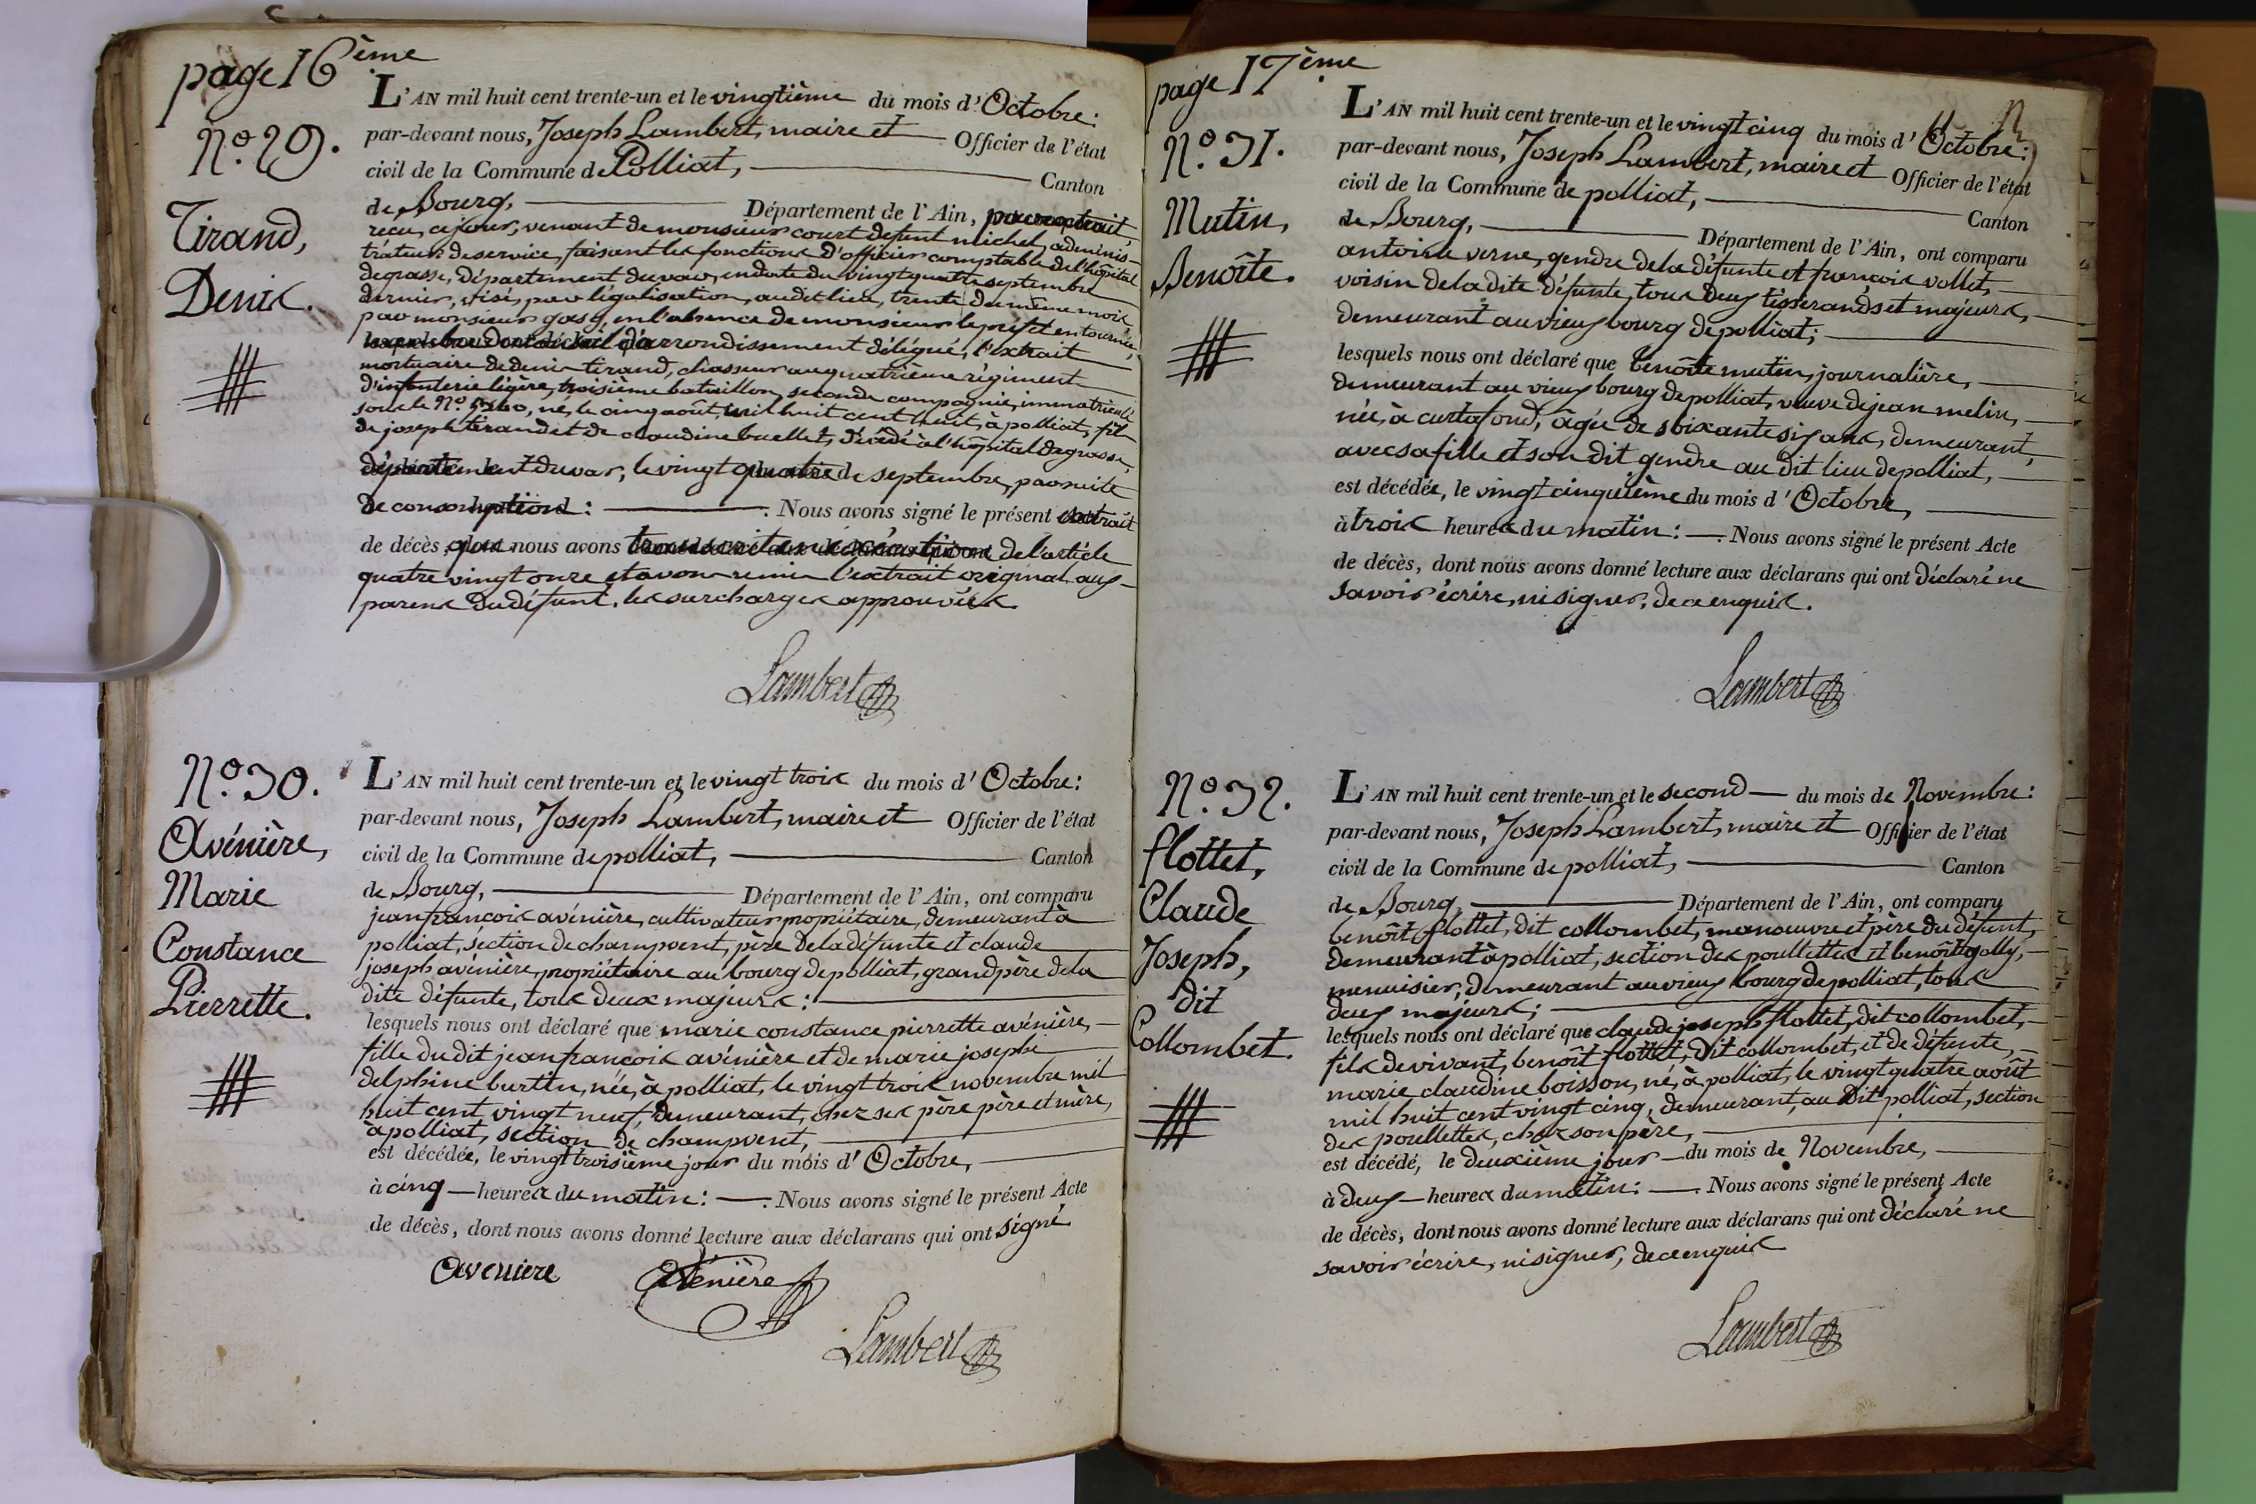 page 16ème
N.° 29.
Tirand,
Denis.
L'AN mil huit cent trente-un et le vingtième du mois d'Octobre:
par-devant nous, Joseph Lambert, maire et Officier de l'état
civil de la Commune de Polliat, Canton
de Bourg, Département de l'Ain,
recu, ce jour, venant de monsieur court defent michel, adminis-
trateur de service, faisant les fonctions d'officier comptable de l'hôpital
de grasse, département du var, en date du vingt quatre septembre
dernier, visé, par légalisation, audit lieu, trente du même mois,
par monsieur en l'absence de monsieur le préfet en tournée,
d'arrondissement délégué, l'extrait
mortuaire de denis tirand, chasseur au quatrième régiment
d'infanterie légère, troisième bataillon, seconde compagnie, immatriculé
sous le N.° né, le cinq août, mil huit cent à polliat, fils
de joseph tirand et de claudine buellet, décédé à l'hôpital de grasse,
département du var, le vingt quatre de septembre, par suite
de : Nous avons signé le présent extrait
de décès que nous avons transcrit en exécution de l'article
quatre vingt onze et avons remis l'extrait original aux
parens du défunt. les surcharges approuvées.
Lambert
N.° 30.
Avénière,
Marie
Constance
Pierrette.
L'AN mil huit cent trente-un et le vingt trois du mois d'Octobre:
par-devant nous, Joseph Lambert, maire et Officier de l'état
civil de la Commune de polliat, Canton
de Bourg, Département de l'Ain, ont comparu
jean françois avénière, cultivateur propriétaire, demeurant à
polliat, section de champvent, père de la défunte et claude
joseph avénière, propriétaire au bourg de polliat, grand père de la
dite défunte, tous deux majeurs:
lesquels nous ont déclaré que marie constance pierrette avénière,
fille du dit jean françois avénière et de marie josephe
delphine burtin, née, à polliat, le vingt trois novembre mil
huit cent vingt neuf, demeurant, chez ses père père et mère,
à polliat, section de champvent,
est décédée, le vingt troisième jour du mois d'Octobre,
à cinq heures du matin: Nous avons signé le présent Acte
de décès, dont nous avons donné lecture aux déclarans qui ont signé
Aveniere Avenière
Lambert
page 17ème
N.° 31.
Mutin,
Benoîte.
L'AN mil huit cent trente-un et le vingt cinq du mois d'Octobre:
par-devant nous, Joseph Lambert, maire et Officier de l'état
civil de la Commune de polliat, Canton
de Bourg, Département de l'Ain, ont comparu
antoine verne, gendre de la défunte et françois vollet,
voisin de la dite défunte, tous deux tisserands et majeurs,
demeurant au vieux bourg de polliat;
lesquels nous ont déclaré que benoîte mutin, journalière,
demeurant au vieux bourg de polliat, veuve de jean melin,
née, à curtafond, âgée de soixante six ans, demeurant,
avec sa fille et son dit gendre au dit lieu de polliat,
est décédée, le vingt cinquième du mois d'Octobre,
à trois heures du matin: Nous avons signé le présent Acte
de décès, dont nous avons donné lecture aux déclarans qui ont déclaré ne
savoir écrire, ni signer, de ce enquis.
Lambert
N.° 32.
flottet,
Claude
Joseph,
dit
Collombet.
L'AN mil huit cent trente-un et le second du mois de Novembre:
par-devant nous, Joseph Lambert, maire et Officier de l'état
civil de la Commune de polliat, Canton
de Bourg, Département de l'Ain, ont comparu
benoît flottet, dit collombet, manœuvre et père du défunt,
demeurant à polliat, section des poullettes et benoît golly,
menuisier, demeurant au vieux bourg de polliat, tous
deux majeurs;
lesquels nous ont déclaré que claude joseph flottet, dit collombet,
fils de vivant, benoît flottet, dit collombet, et de défunte,
marie claudine boisson, né, à polliat, le vingt quatre août
mil huit cent vingt cinq, demeurant, au dit polliat, section
des poullettes, chez son père,
est décédé, le deuxième jour du mois de Novembre,
à deux heures du matin: Nous avons signé le présent Acte
de décès, dont nous avons donné lecture aux déclarans qui ont déclaré ne
savoir écrire, ni signer, de ce enquis
Lambert